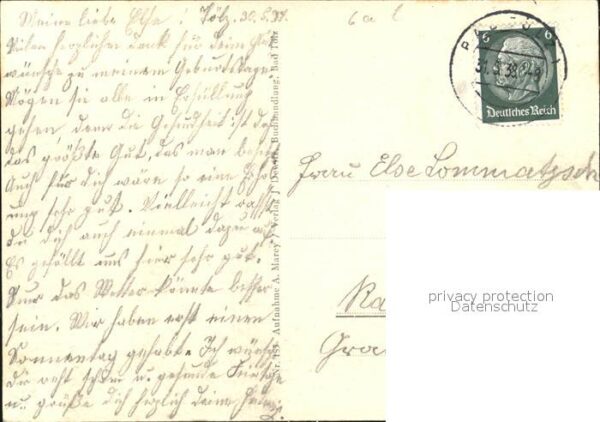 Meine liebe Else! Tölz, 30.5.39.
Vielen herzlichen Dank für deine
wünsche zu meinem Geburtstage.
Mögen sie alle in Erfüllung
gehen, denn die Gesundheit ist doch
das größte Gut, das man
Auch für dich wäre so eine
sehr gut. Vielleicht
du dich auch einmal dazu
Es gefällt uns hier sehr gut.
Nur das Wetter könnte besser
sein. Wir haben erst einen
Sonnentag gehabt. Ich wünsche
dir recht u. gesunde
u. grüße dich herzlich deine
6a l
Nr. 151 Aufnahme A. Marey Verlag J. Buchhandlung, Bad Tölz
6 6
31.5.39
Deutsches Reich
Frau Else Lommatzsch
Ra
Gra
privacy protection
Datenschutz